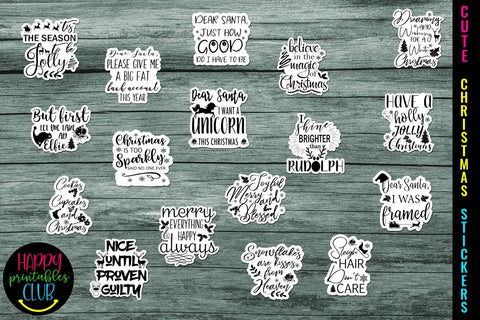 'TIS
THE SEASON
to be
Jolly
Dear Santa,
PLEASE GIVE ME
A BIG FAT
bank account
THIS YEAR
DEAR SANTA,
JUST HOW
GOOD
DO I HAVE TO BE
believe
in the
magic
of
Christmas
Dreaming
AND
WISHING
FOR A
White
Christmas
But first
LET ME TAKE AN
elfie
Christmas
IS TOO
Sparkly
SAID NO ONE EVER
Dear Santa,
I WANT A
UNICORN
THIS CHRISTMAS
I
Shine
BRIGHTER
than
RUDOLPH
HAVE A
holly
JOLLY
Christmas
Cookies
Cupcakes
and
Christmas
merry
EVERYTHING
HAPPY
always
Joyful
Merry
and
Blessed
Dear Santa,
I WAS
framed
NICE
UNTIL
PROVEN
GUILTY
Snowflakes
are kisses
from
Heaven
Sleigh
HAIR
Don't
CARE
HAPPY
printables
CLUB
CUTE CHRISTMAS STICKERS